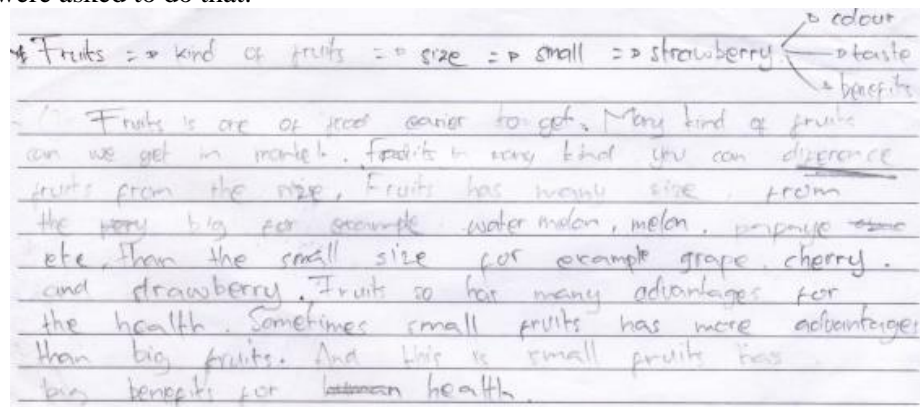 were asked to do that.
colour
* Fruits => kind of fruits => size => small => strawberry => taste
benefits
Fruits is one of food earier to get. Many kind of fruits
can we get in market. in many kind you can diference
fruits from the size, Fruits has many size from
the big for example water melon, melon, papaye
etc, Than the small size for example grape, cherry.
and strawberry. Fruits so has many advantages for
the health. Sometimes small fruits has more advantages
than big fruits. And this is small fruits has
big benefits for health.